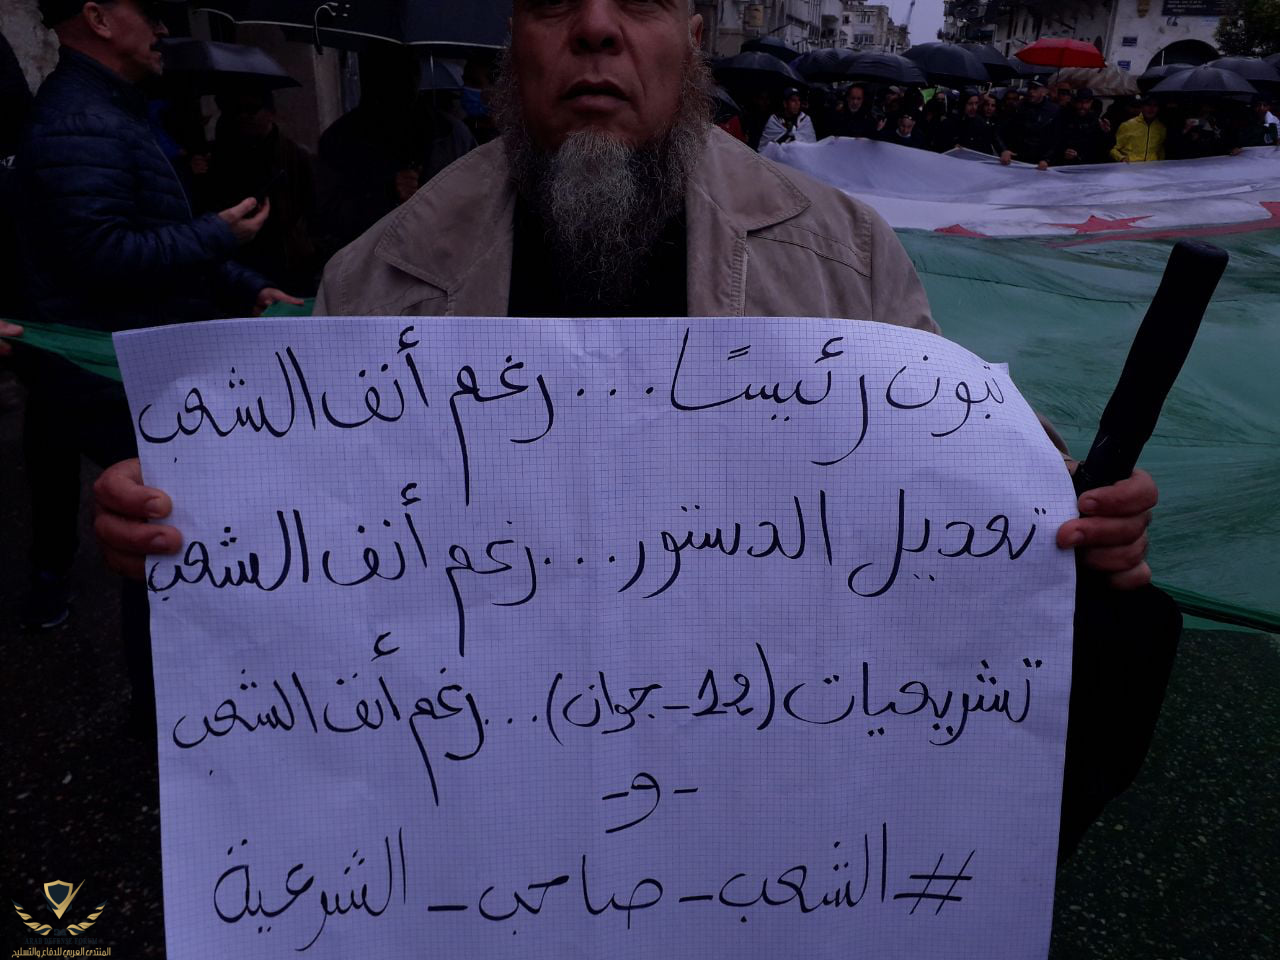 تبون رئيسًا... رغم أنف الشعب
تعديل الدستور... رغم أنف الشعب
تشريعيات (12-جوان)... رغم أنف الشعب
- و -
#الشعب_صاحب_الشرعية
المنتدى العربي للدفاع والتسليح